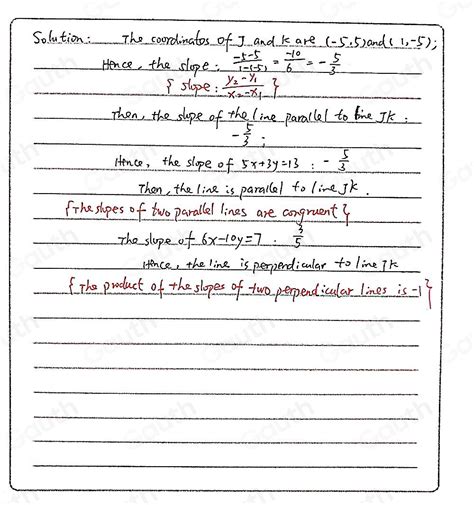 Solution: The coordinates of J and K are (-5.5) and (1,-5);
Hence, the slope: \frac{-5-5}{1-(-5)} = \frac{-10}{6} = -\frac{5}{3}
{ slope: \frac{y₂-y₁}{x₂-x₁} }
Then, the slope of the line parallel to line JK:
-\frac{5}{3};
Hence, the slope of 5x+3y=13: -\frac{5}{3}
Then, the line is parallel to line JK.
{The slopes of two parallel lines are congruent}
The slope of 6x-10y=7: \frac{3}{5}
Hence, the line is perpendicular to line JK
{The product of the slopes of two perpendicular lines is -1}